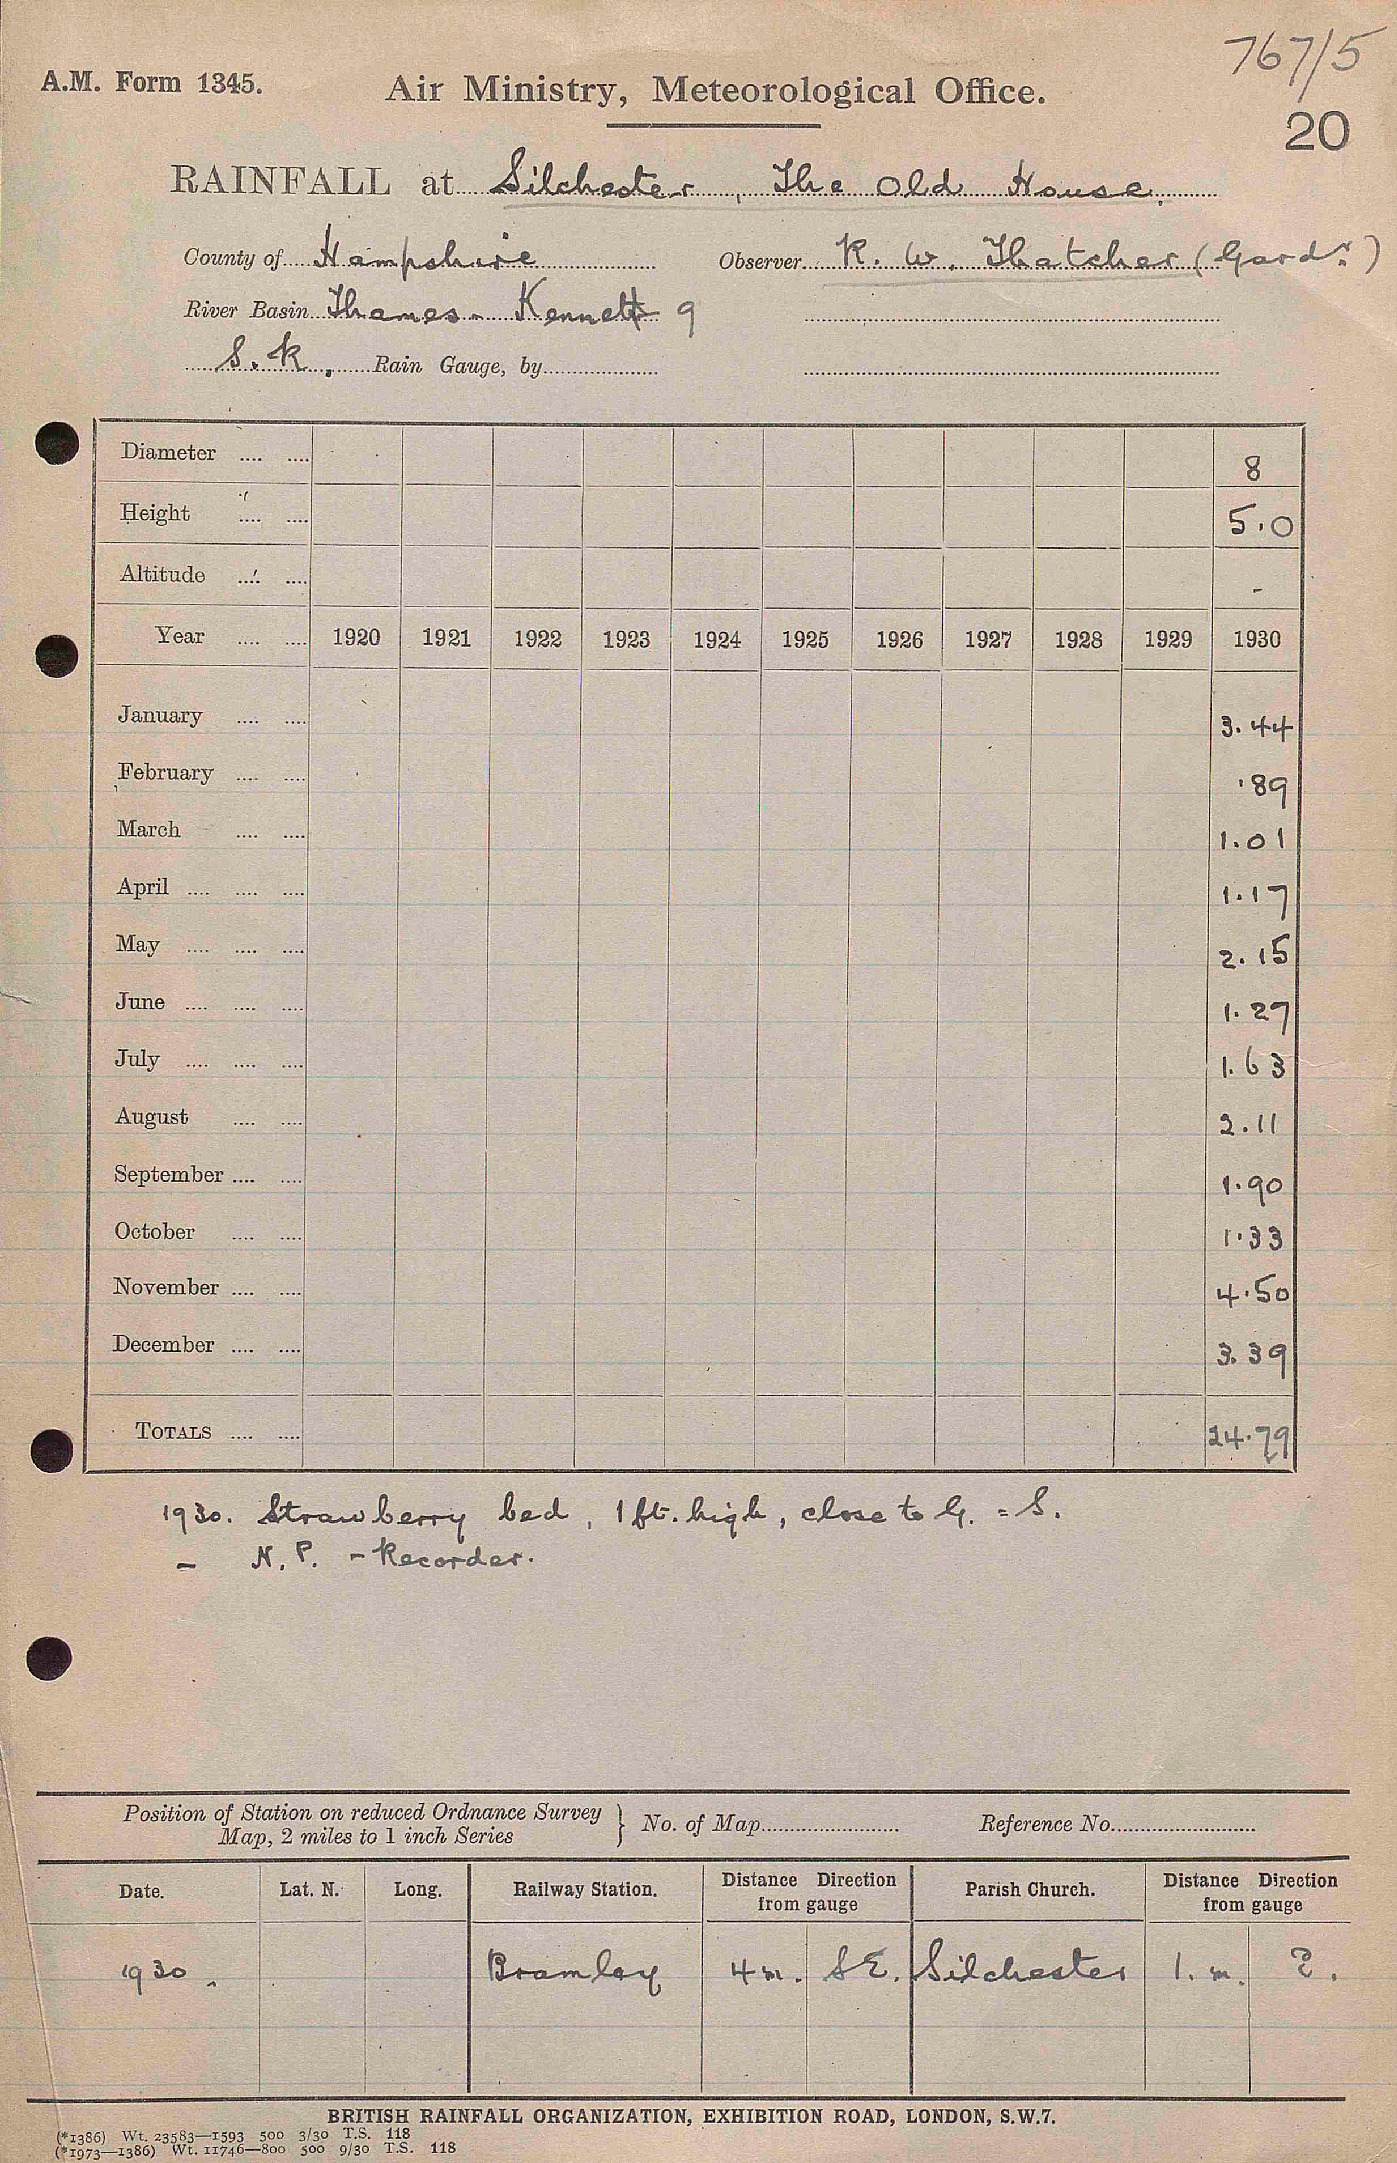 767/5
A.M. Form 1345. Air Ministry, Meteorological Office.
20
RAINFALL at Silchester, The Old House.
County of Hampshire Observer R. W. Thatcher (Gardr.)
River Basin Thames - Kennett 9
S.K. Rain Gauge, by
Diameter .... .... 8
Height .... .... 5.0
Altitude .... .... -
Year .... .... 1920 1921 1922 1923 1924 1925 1926 1927 1928 1929 1930
January .... .... 3.44
February .... .... .89
March .... .... 1.01
April .... .... .... 1.17
May .... .... .... 2.15
June .... .... .... 1.27
July .... .... .... 1.63
August .... .... 2.11
September .... .... 1.90
October .... .... 1.33
November .... .... 4.50
December .... .... 3.39
TOTALS .... .... 24.79
1930. Strawberry bed, 1 ft. high, close to G. = S.
- N.P. - Recorder.
Position of Station on reduced Ordnance Survey } No. of Map Reference No.
Map, 2 miles to 1 inch Series
Date. Lat. N. Long. Railway Station. Distance Direction from gauge Parish Church. Distance Direction from gauge
1930. Bramley 4 m. SE. Silchester 1. m. E.
BRITISH RAINFALL ORGANIZATION, EXHIBITION ROAD, LONDON, S.W.7.
(*1386) Wt. 23583—1593 500 3/30 T.S. 118
(*1973—1386) Wt. 11746—800 500 9/30 T.S. 118